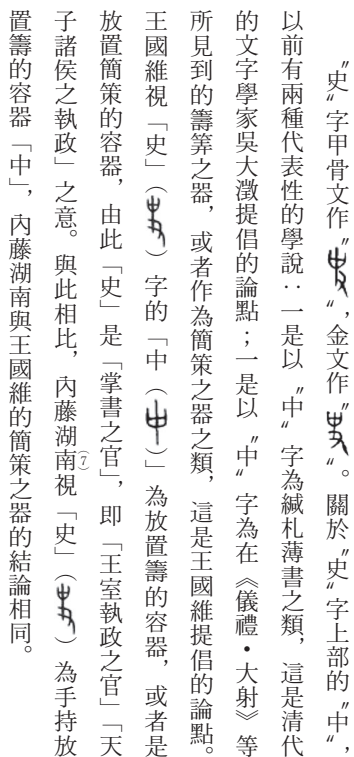 "史"字甲骨文作" "，金文作" "。關於"史"字上部的"中"，
以前有兩種代表性的學說：一是以"中"字為緘札薄書之類，這是清代
的文字學家吳大澂提倡的論點；一是以"中"字為在《儀禮•大射》等
所見到的籌筭之器，或者作為簡策之器之類，這是王國維提倡的論點。
王國維視「史」（ ）字的「中（ ）」為放置籌的容器，或者是
放置簡策的容器，由此「史」是「掌書之官」，即「王室執政之官」「天
子諸侯之執政」之意。與此相比，內藤湖南⑺視「史」（ ）為手持放
置籌的容器「中」，內藤湖南與王國維的簡策之器的結論相同。